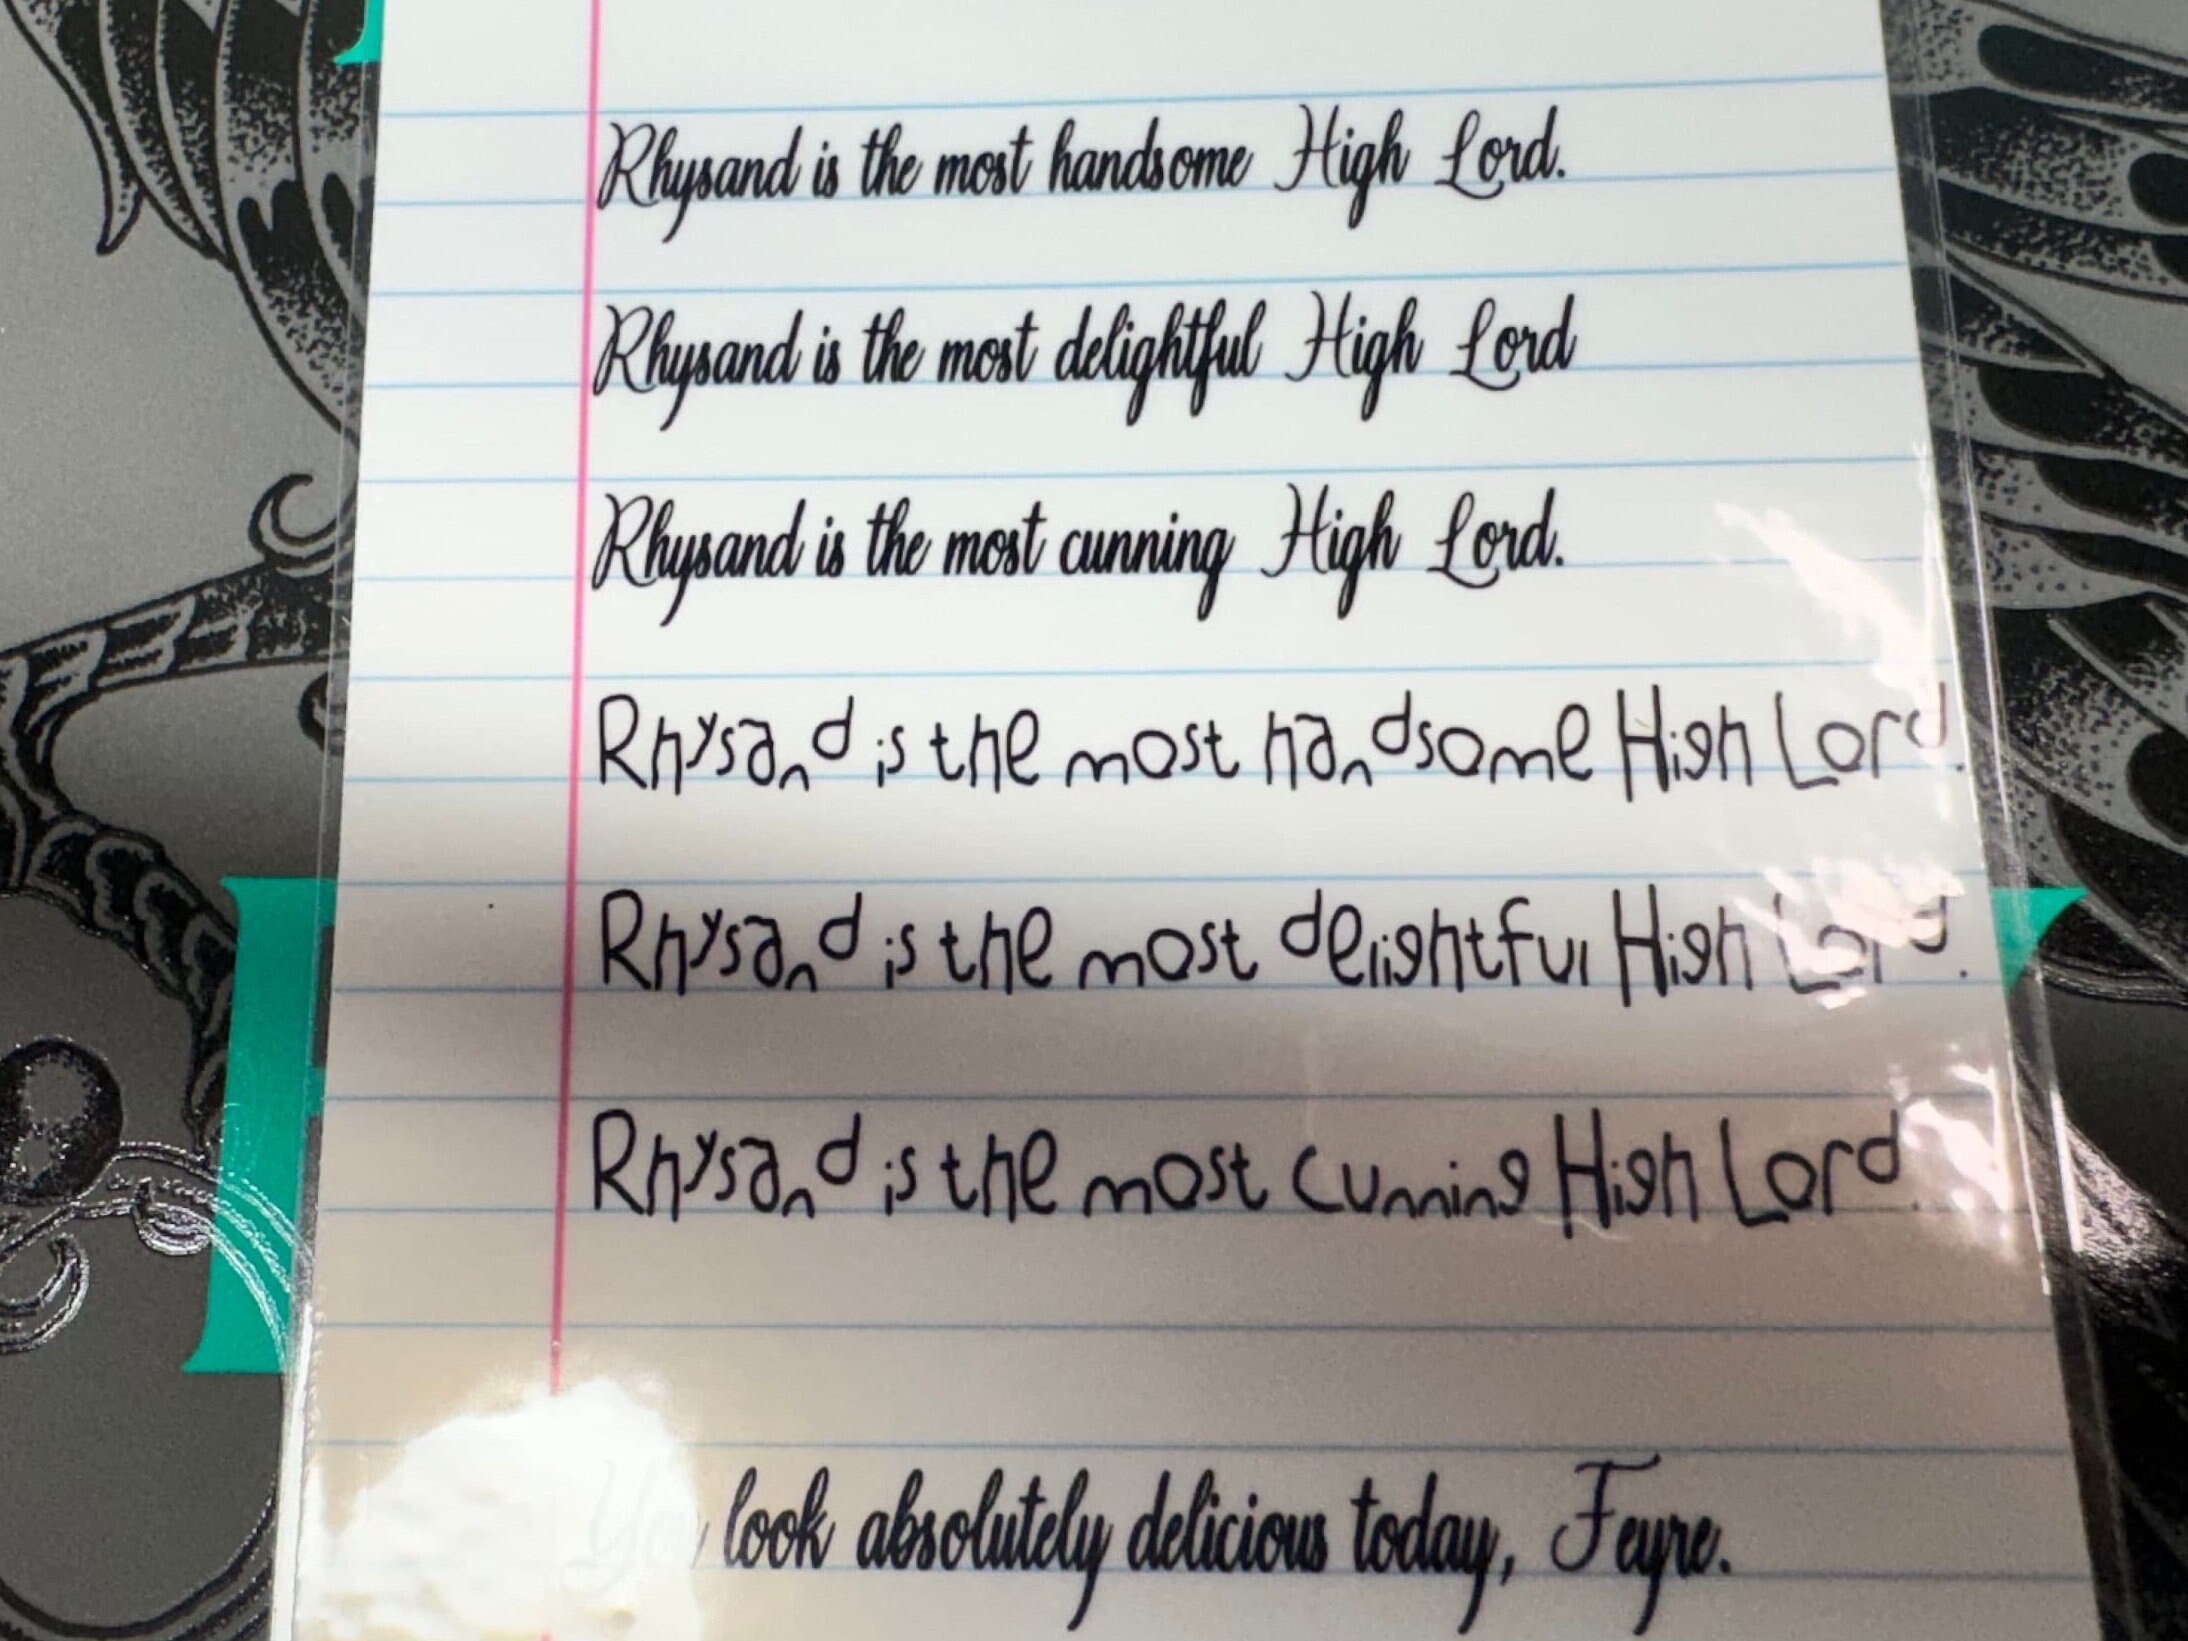 Rhysand is the most handsome High Lord.
Rhysand is the most delightful High Lord
Rhysand is the most cunning High Lord.
Rhysand is the most handsome High Lord.
Rhysand is the most delightful High Lord.
Rhysand is the most cunning High Lord.
You look absolutely delicious today, Feyre.